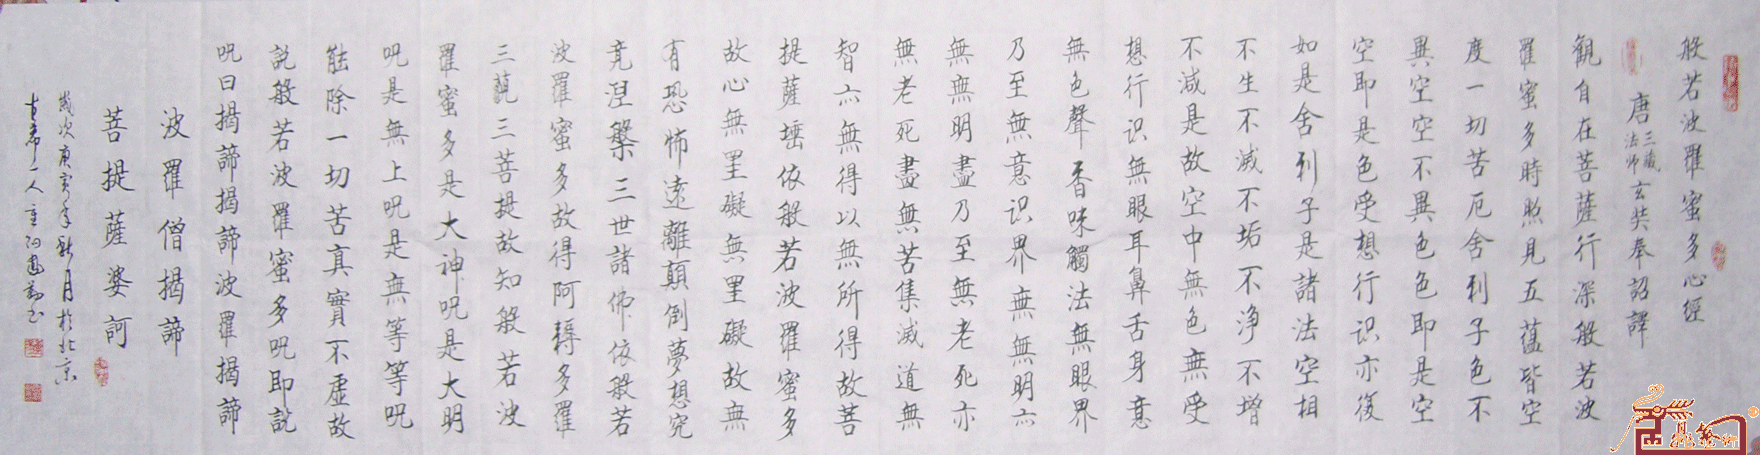 般若波羅蜜多心經
唐三藏法师玄奘奉詔譯
觀自在菩薩行深般若波
羅蜜多時照見五蘊皆空
度一切苦厄舍利子色不
異空空不異色色即是空
空即是色受想行识亦復
如是舍利子是諸法空相
不生不滅不垢不净不增
不减是故空中無色無受
想行识無眼耳鼻舌身意
無色聲香味觸法無眼界
乃至無意识界無無明亦
無無明盡乃至無老死亦
無老死盡無苦集滅道無
智亦無得以無所得故菩
提薩埵依般若波羅蜜多
故心無罣礙無罣礙故無
有恐怖遠離顛倒夢想究
竟涅槃三世諸佛依般若
波羅蜜多故得阿耨多羅
三藐三菩提故知般若波
羅蜜多是大神咒是大明
咒是無上咒是無等等咒
能除一切苦真實不虛故
説般若波羅蜜多咒即説
咒曰揭諦揭諦波羅揭諦
波羅僧揭諦
菩提薩婆訶
歲次庚寅年新月於北京